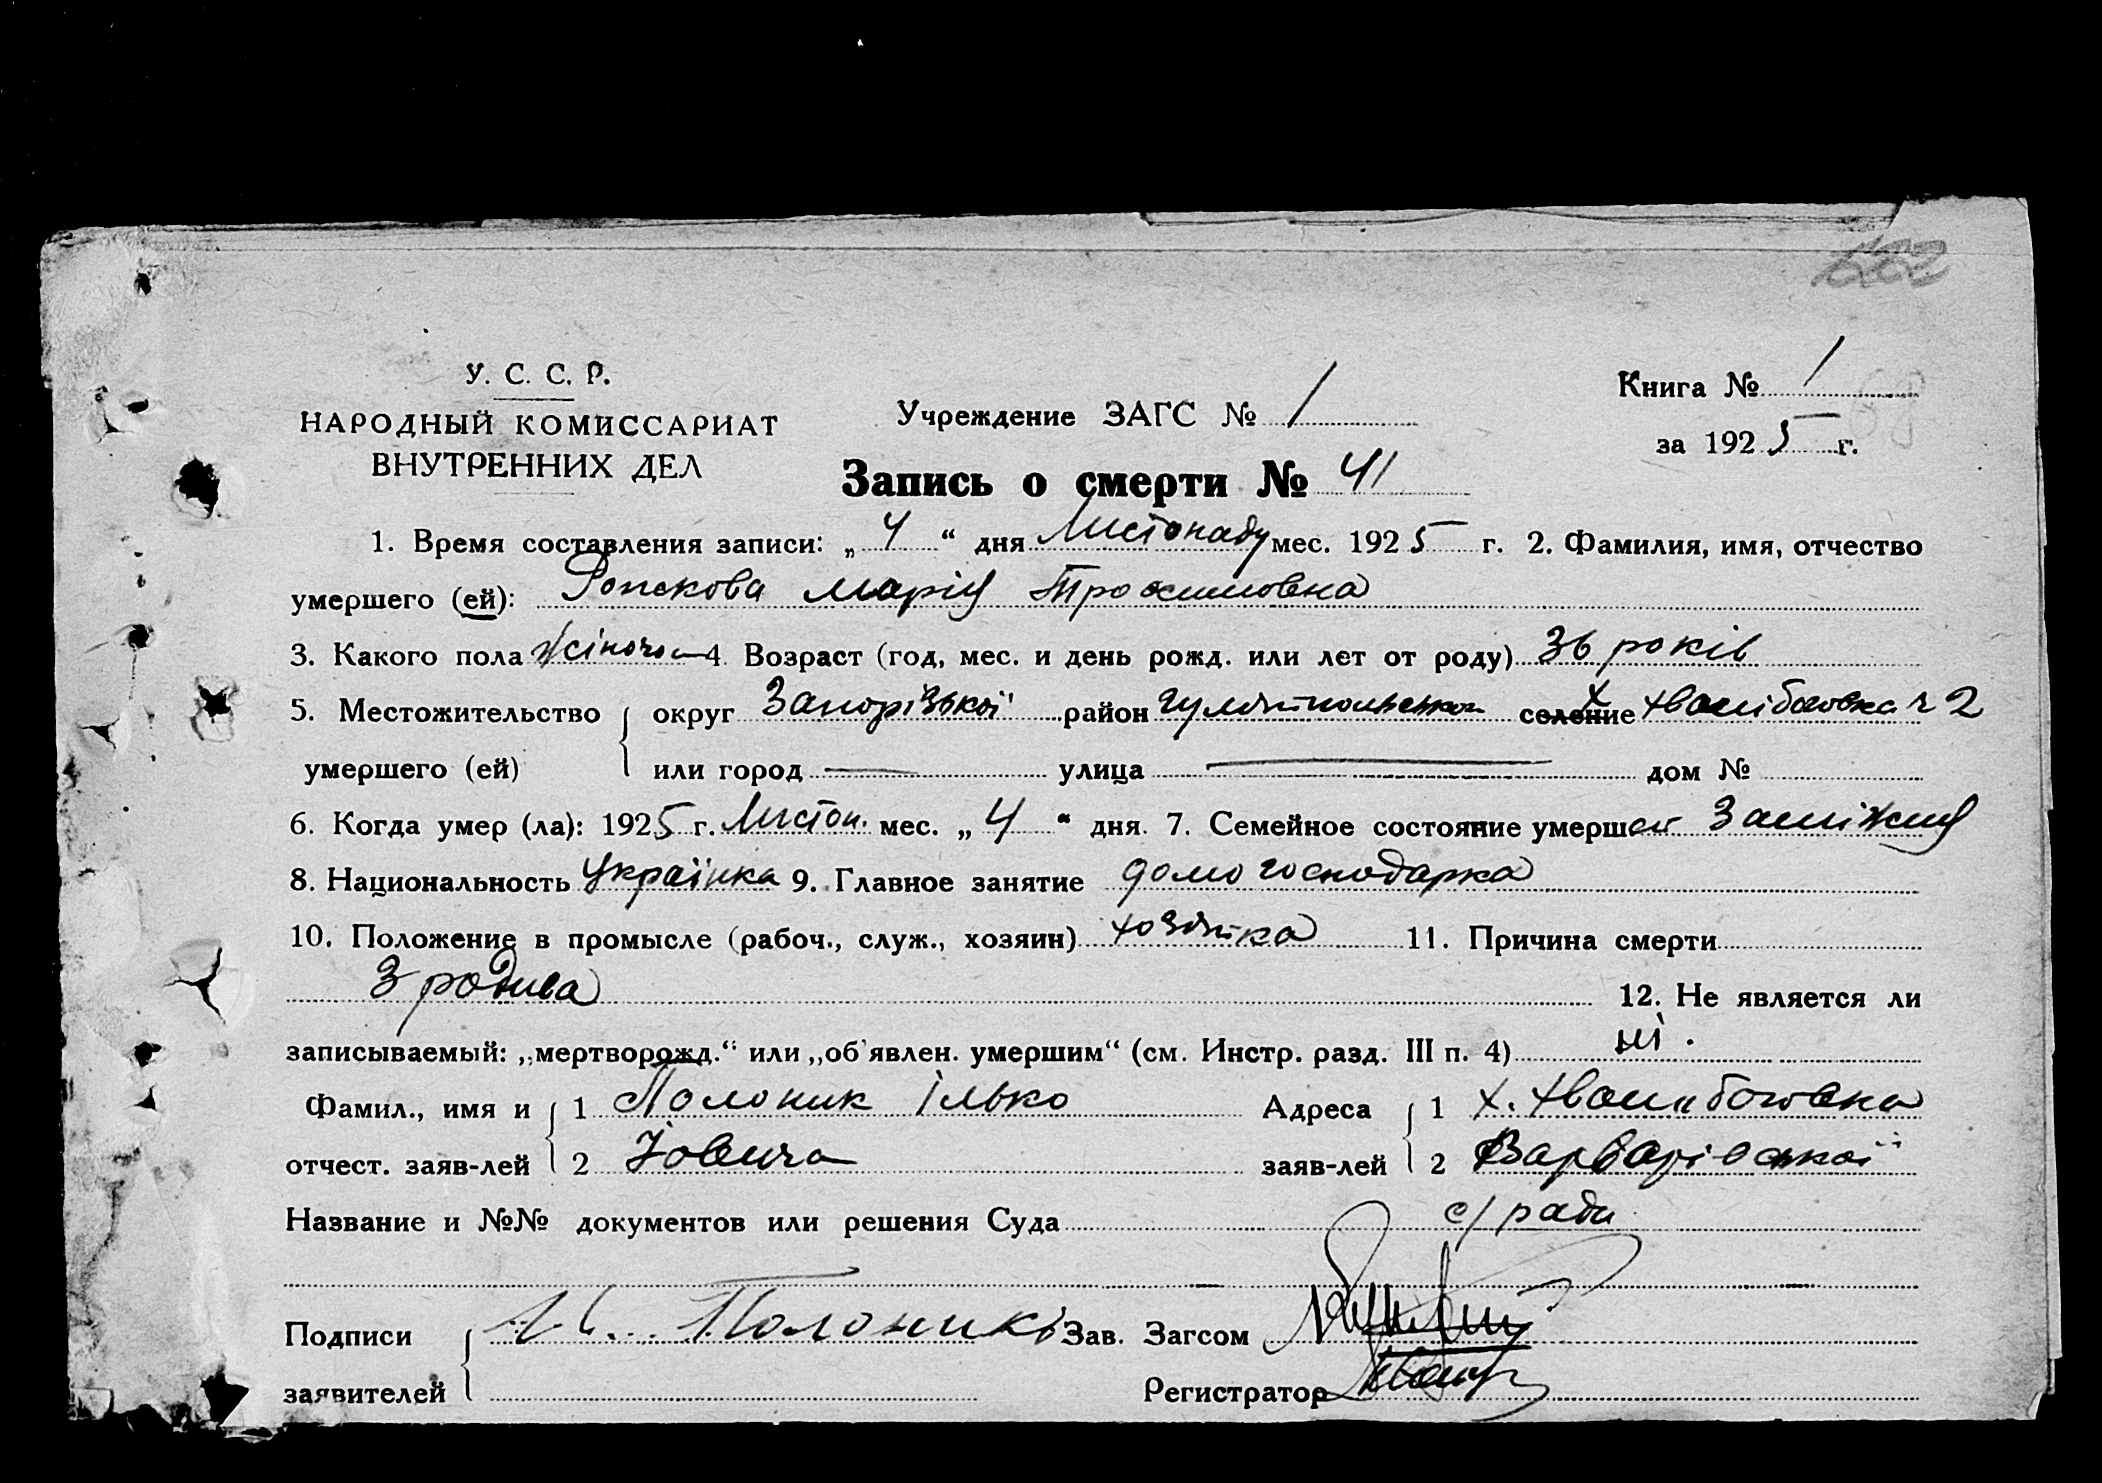 У. С. С. Р.
НАРОДНЫЙ КОМИССАРИАТ
ВНУТРЕННИХ ДЕЛ
Учреждение ЗАГС № 1
Книга № 1
за 1925 г.
Запись о смерти № 41
1. Время составления записи: „ 4 “ дня Листопаду мес. 1925 г. 2. Фамилия, имя, отчество
умершего (ей): Марія Трохимовна
3. Какого пола жіночої 4. Возраст (год, мес. и день рожд. или лет от роду) 36 років
5. Местожительство округ Запорізької район гуляйпольської селение х 2
умершего (ей) или город — улица — дом №
6. Когда умер (ла): 1925 г. Листоп. мес. „ 4 “ дня. 7. Семейное состояние умершей Заміжня
8. Национальность Українка 9. Главное занятие домогосподарка
10. Положение в промысле (рабоч., служ., хозяин) хозяйка 11. Причина смерти
З родива
12. Не является ли
записываемый: „мертворожд.“ или „об'явлен. умершим“ (см. Инстр. разд. III п. 4) ні.
Фамил., имя и 1 Полоник Ілько Адреса 1 х.
отчест. заяв-лей 2 Іовича заяв-лей 2 Варварівської
Название и №№ документов или решения Суда с/ради
Подписи Полоник Зав. Загсом
заявителей Регистратор